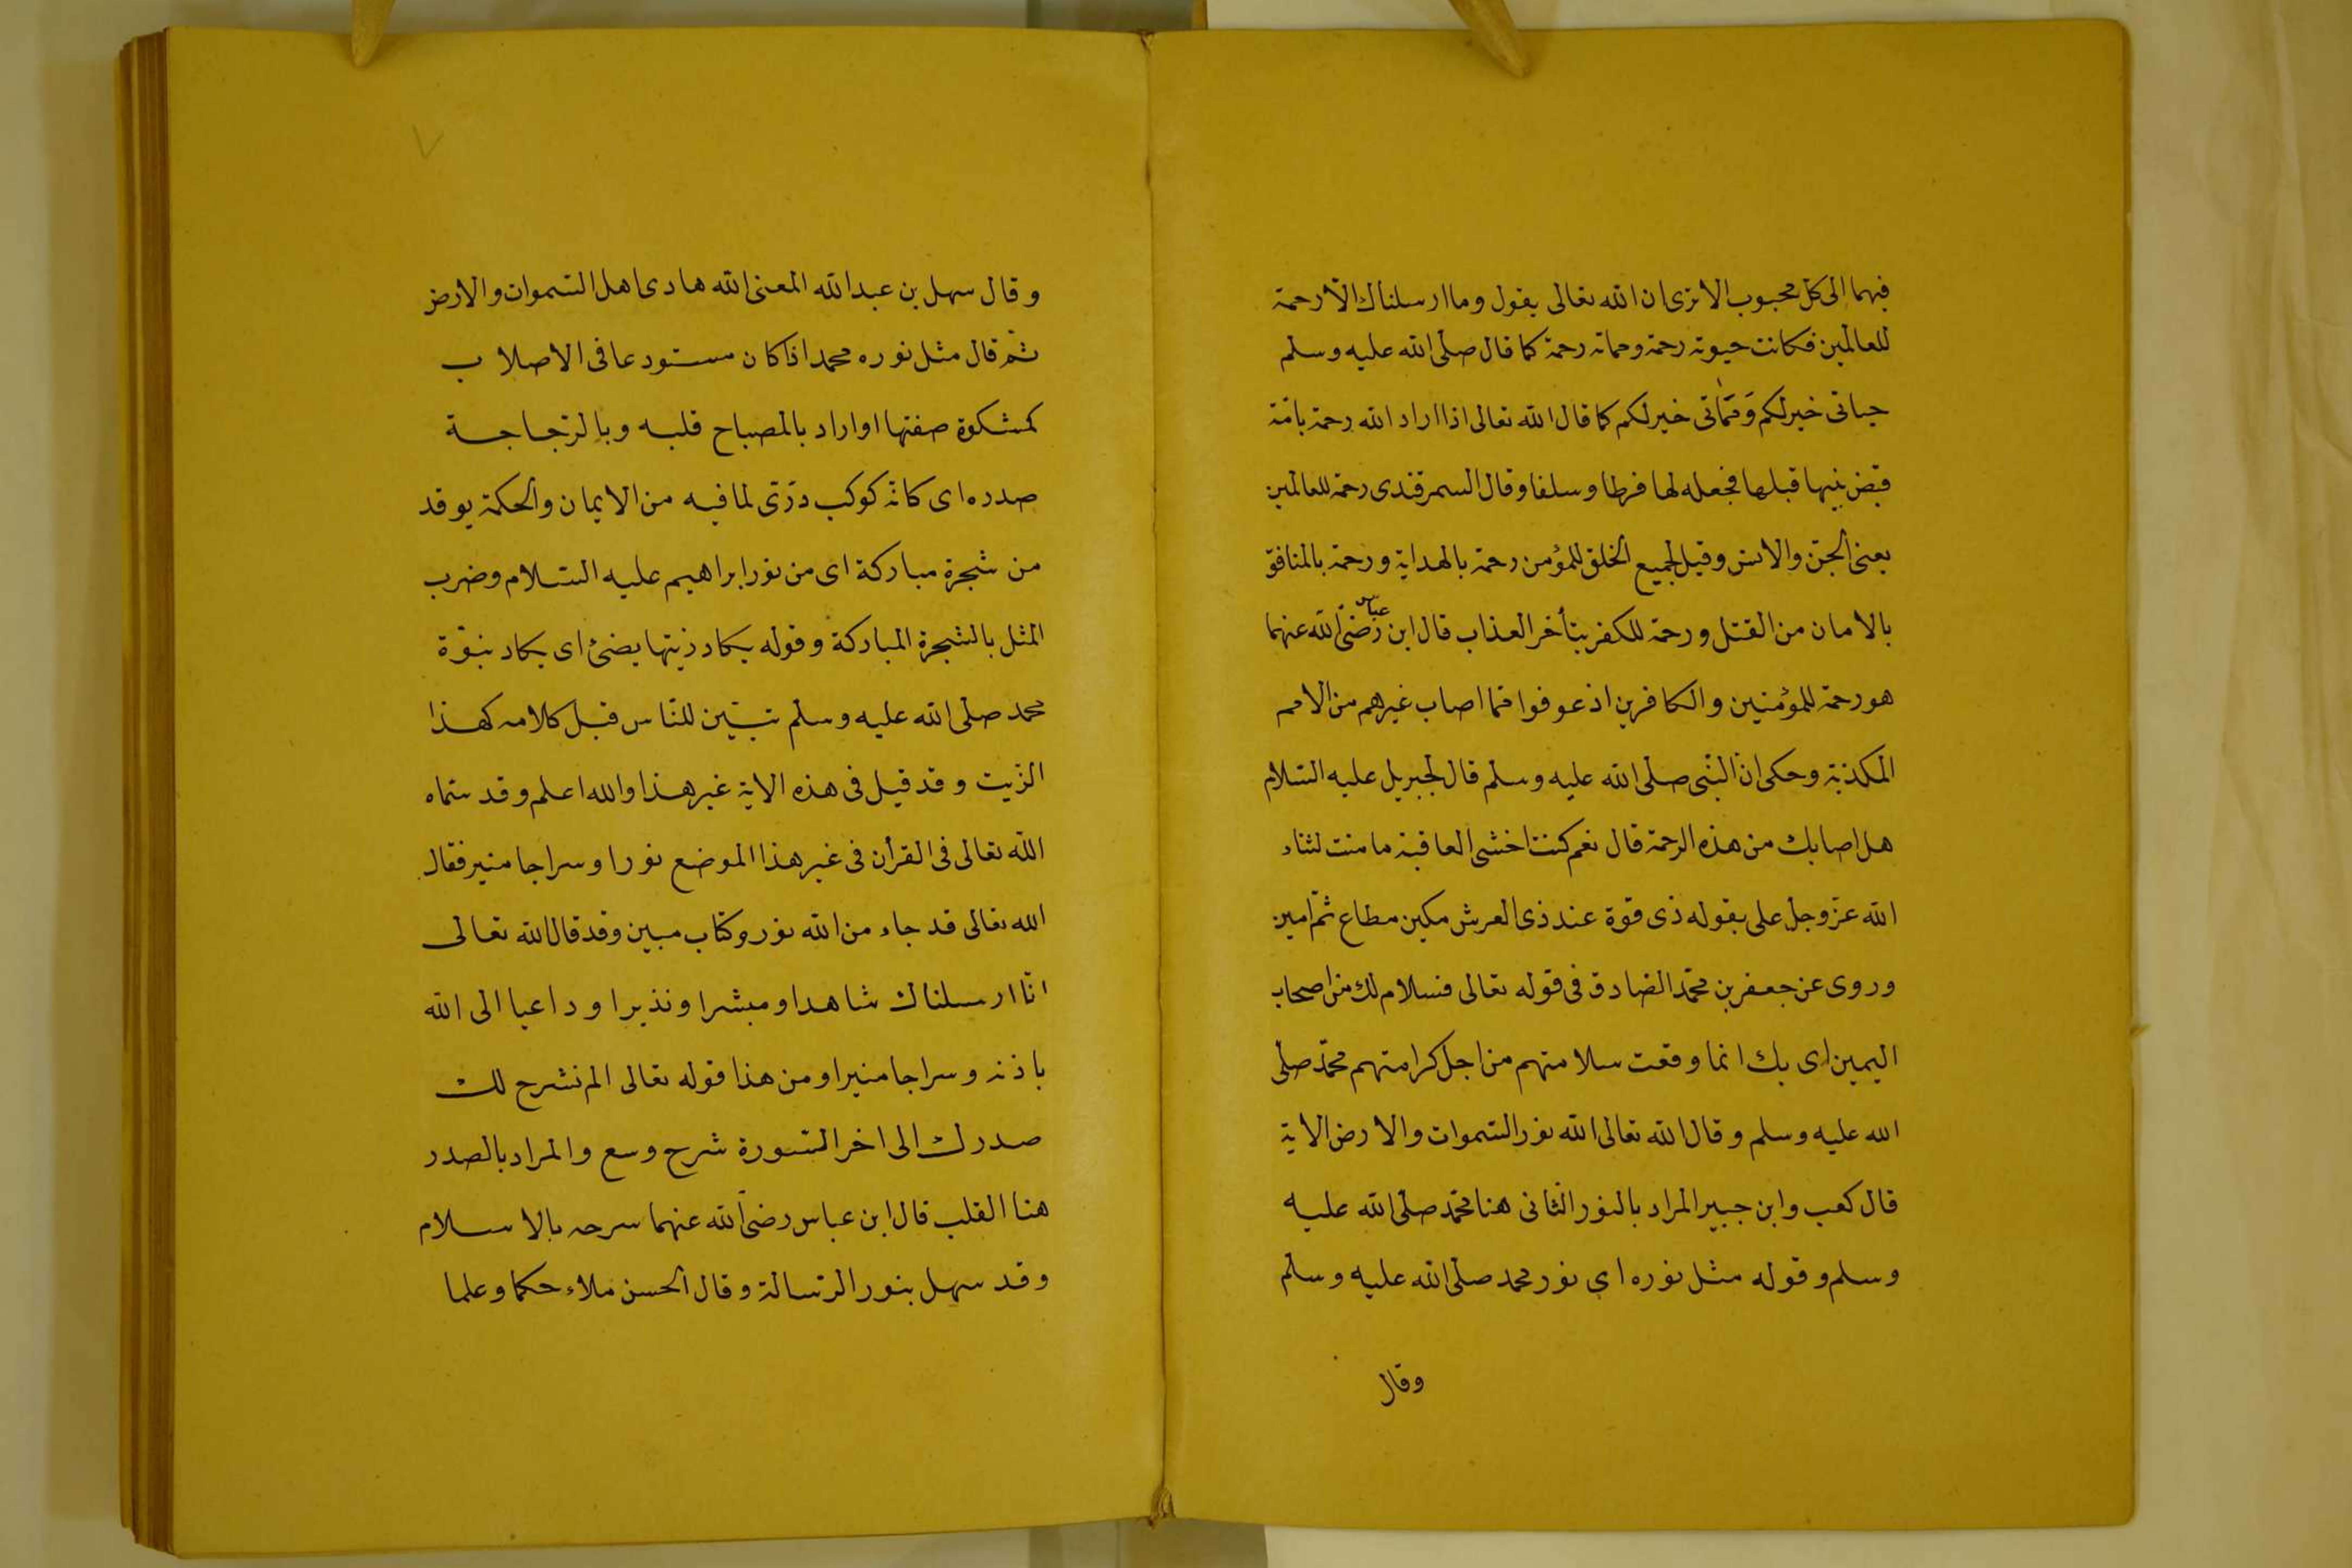 فيهما الى كل محبوب الا ترى ان الله تعالى يقول وما ارسلناك الا رحمة
للعالمين فكانت حيوته رحمة ومماته رحمة كما قال صلى الله عليه وسلم
حياتى خير لكم ومماتى خير لكم كما قال الله تعالى اذا اراد الله رحمة بامّة
قبض نبيها قبلها فجعله لها فرطا وسلفا وقال السمرقندى رحمة للعالمين
يعنى الجنّ والانس وقيل لجميع الخلق للمؤمن رحمة بالهداية ورحمة بالمنافق
بالامان من القتل ورحمة للكفر بتأخر العذاب قال ابن عباس رضى الله عنهما
هو رحمة للمؤمنين والكافرين اذ عوفوا ممّا اصاب غيرهم من الامم
المكذبة وحكى انّ النّبى صلى الله عليه وسلم قال لجبريل عليه السّلام
هل اصابك من هذه الرحمة قال نعم كنت اخشى العاقبة مامنت لثناء
الله عزّ وجلّ على بقوله ذى قوة عند ذى العرش مكين مطاع ثمّ امين
وروى عن جعفر بن محمّد الصّادق فى قوله تعالى فسلام لك من اصحاب
اليمين اى بك انما وقعت سلامتهم من اجل كرامتهم محمّد صلّى
الله عليه وسلم وقال الله تعالى الله نور السّموات والارض الاية
قال كعب وابن جبير المراد بالنور الثّانى هنا محمّد صلّى الله عليه
وسلم وقوله مثل نوره اى نور محمد صلّى الله عليه وسلّم
وقال
وقال سهل بن عبد الله المعنى الله هادى اهل السّموات والارض
ثمّ قال مثل نوره محمد اذا كان مستودعا فى الاصلاب
كمشكوة صفتها او اراد بالمصباح قلبه وبالزّجاجة
صدره اى كانّه كوكب درّىّ لما فيه من الايمان والحكمة يوقد
من شجرة مباركة اى من نور ابراهيم عليه السّلام وضرب
المثل بالشّجرة المباركة وقوله يكاد زيتها يضئ اى يكاد نبوّة
محمد صلّى الله عليه وسلّم تبيّن للنّاس قبل كلامه كهذا
الزّيت وقد قيل فى هذه الاية غير هذا والله اعلم وقد سمّاه
الله تعالى فى القرأن فى غير هذا الموضع نورا وسراجا منير فقال
الله تعالى قد جاء من الله نور وكتاب مبين وقد قال الله تعالى
انّا ارسلناك شاهدا ومبشرا ونذيرا وداعيا الى الله
باذنه وسراجا منيرا ومن هذا قوله تعالى الم نشرح لك
صدرك الى اخر السّورة شرح وسع والمراد بالصدر
هنا القلب قال ابن عباس رضى الله عنهما سرحه بالاسلام
وقد سهل بنور الرّسالة وقال الحسن ملاء حكما وعلما